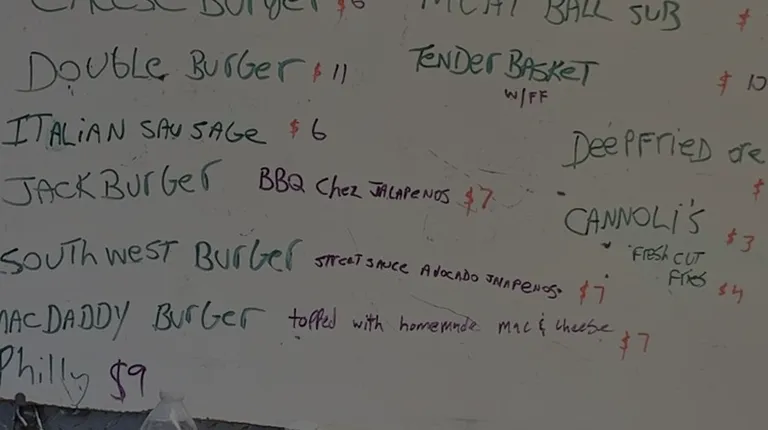 CHEESE BURGER $6
MEAT BALL SUB $
DOUBLE BURGER $11
TENDER BASKET $10
W/FF
ITALIAN SAUSAGE $6
DEEPFRIED ore
$
JACK BURGER BBQ Chez JALAPENOS $7
CANNOLI'S $3
FRESH CUT
FRIES $4
SOUTHWEST BURGER STREET SAUCE AVOCADO JALAPENOS $7
MACDADDY BURGER topped with homemade mac & cheese $7
Philly $9